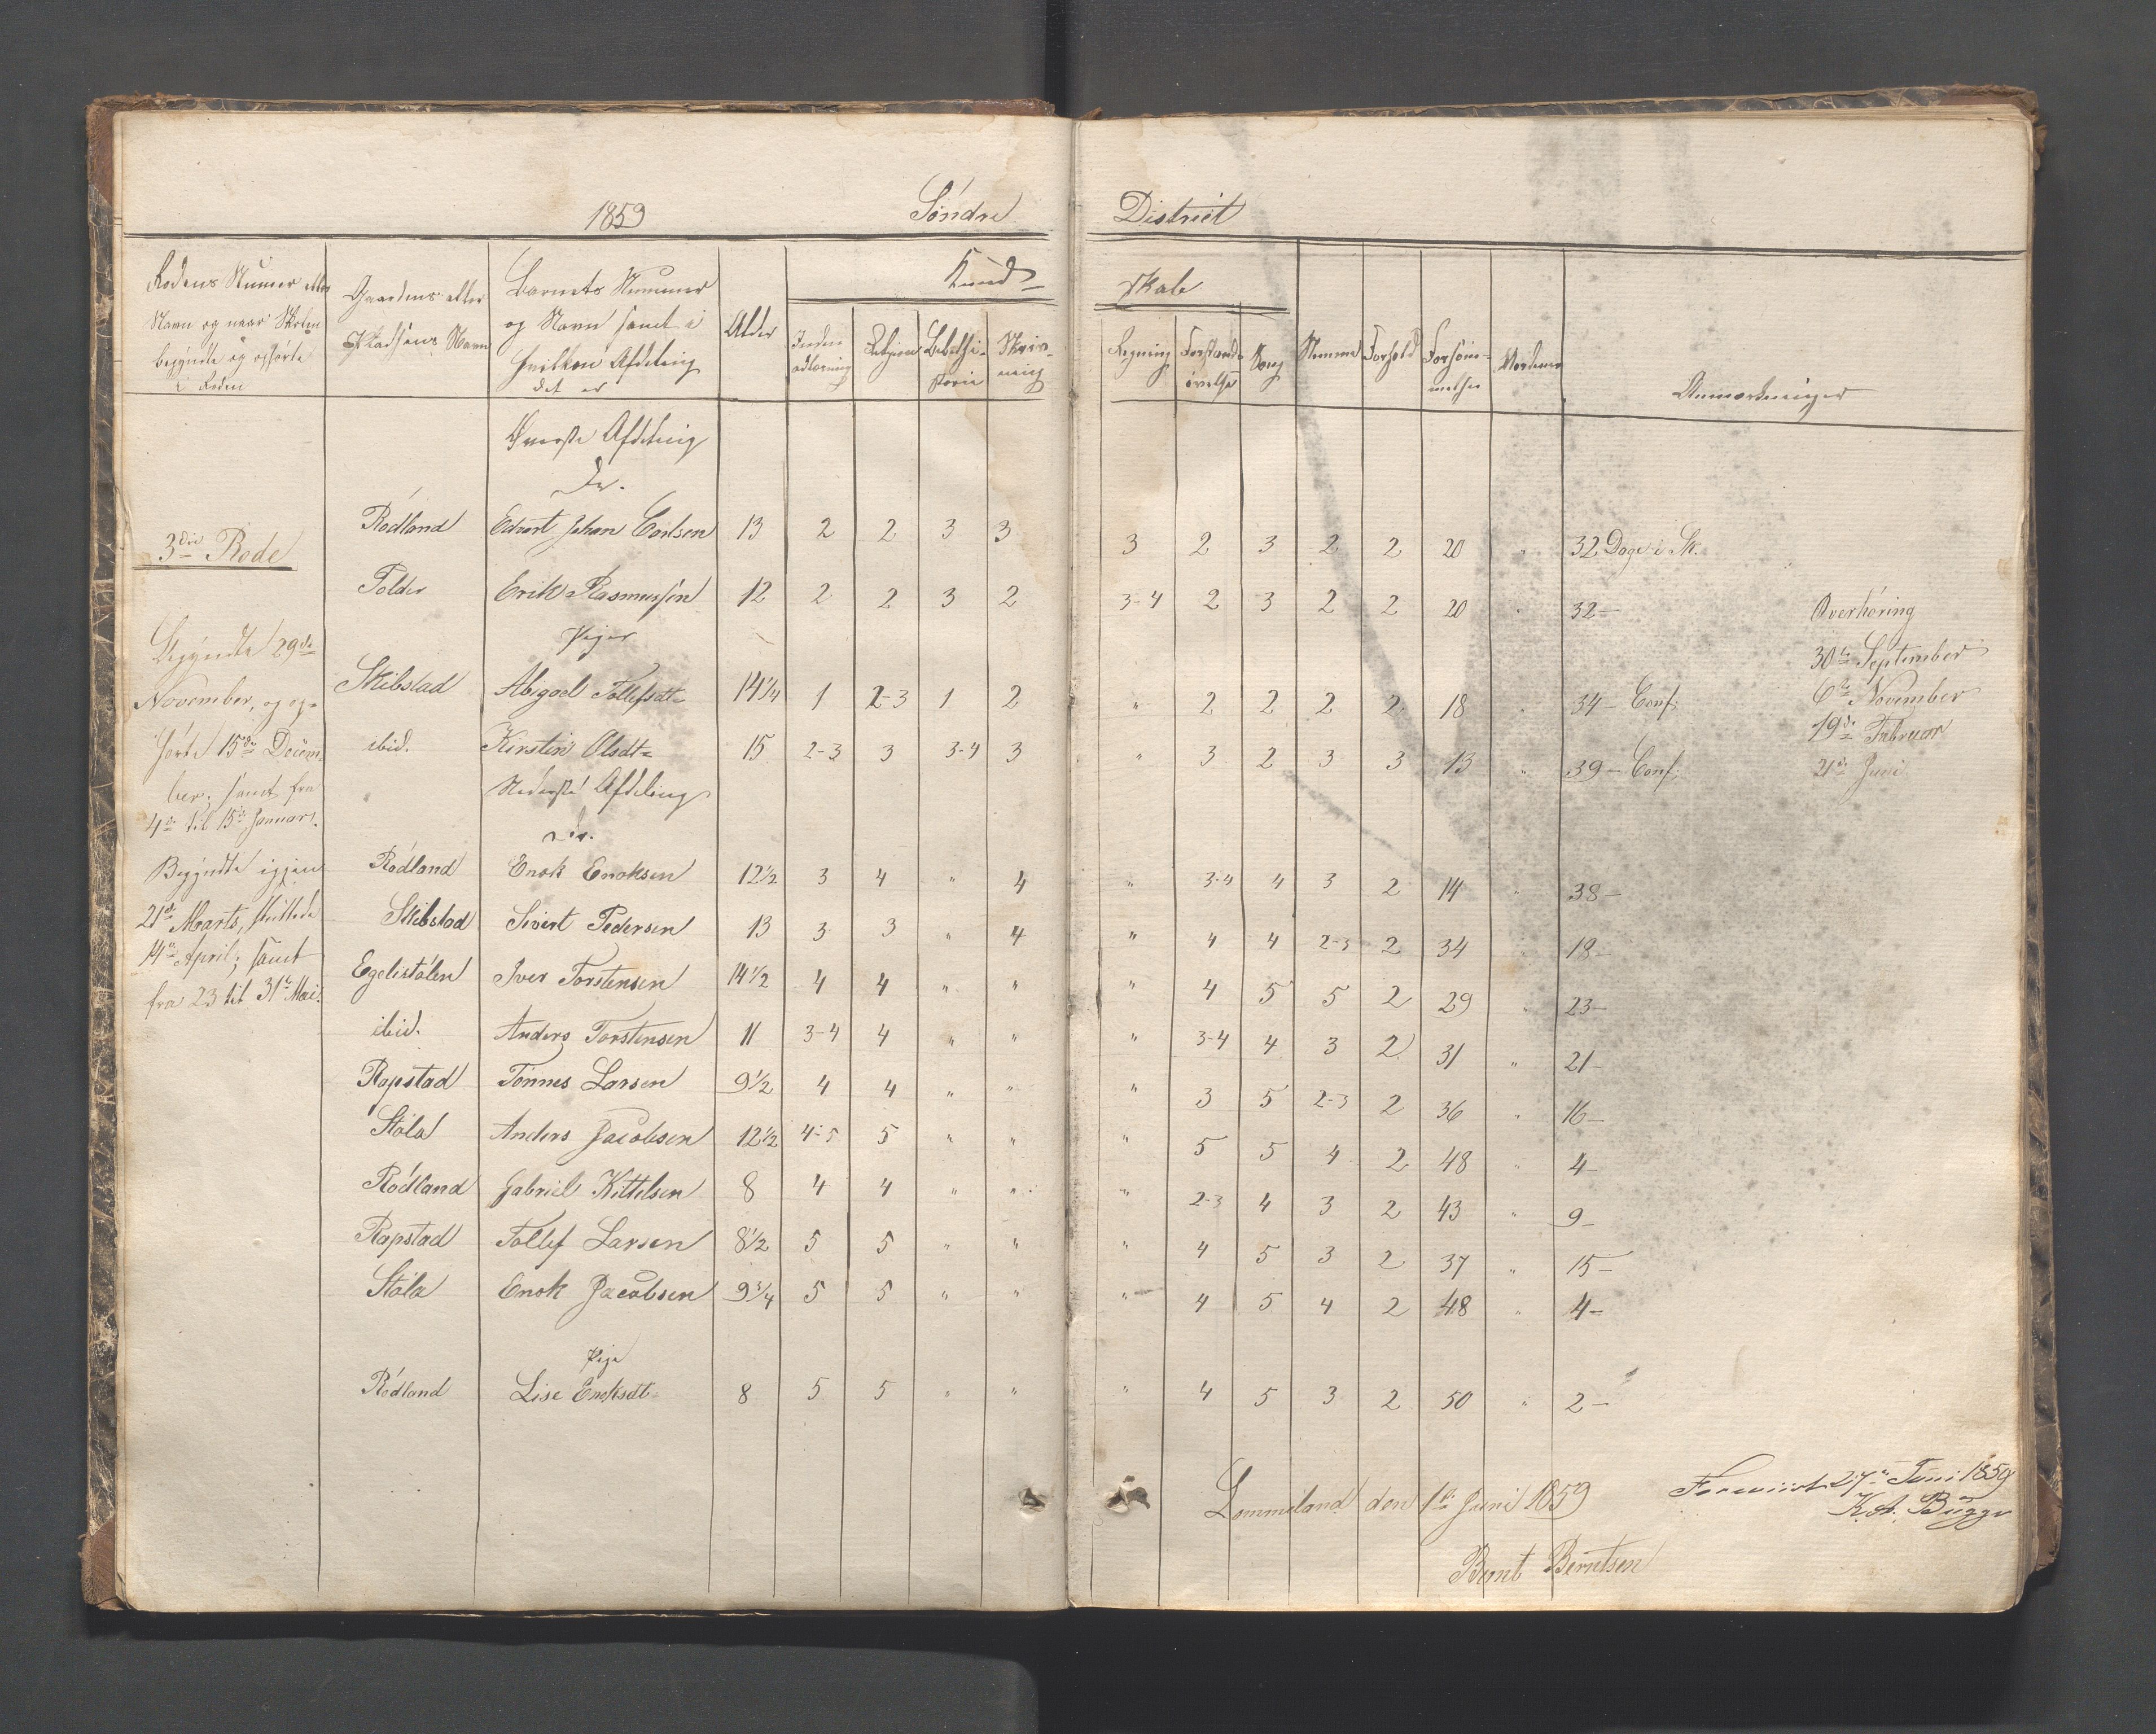 1859 Söndre District
Rodens Numer eller Navn og naar Skolen begyndte og ophörte i Roden
Gaardens eller Pladsens Navn
Barnets Nummer og Navn samt i hvilken Afdeling det er
Alder
Kundskab
Inden adlæsning
Religion
Bibelhistorie
Skrivning
Regning
Forstandsövelse
Sang
Nemme
Forhold
Forsömmelser
Anmærkninger
Överste Afdeling
Dr.
3die Rode
Rödland Edvart Johan Carlsen 13 2 2 3 3 3 2 3 2 2 20 " 32 Dage i Sk.
Tolder Erik Rasmussen 12 2 2 3 2 3-4 2 3 2 2 20 " 32 —
Piger
Skibstad Abigael Tollefsdt 14 1/4 1 2-3 1 2 " 2 2 2 2 18 " 34 — Conf.
ibid. Kirstin Olsdt 15 2-3 3 3-4 3 " 3 2 3 3 13 " 39 — Conf.
Nederste Afdeling
Dr.
Rödland Enok Enoksen 12 1/2 3 4 " 4 " 3-4 4 3 2 14 " 38 —
Skibstad Sivert Pedersen 13 3 3 " 4 " 4 4 2-3 2 34 " 18 —
Egelistölen Iver Torstensen 14 1/2 4 4 " " " 4 5 5 2 29 " 23 —
ibid. Anders Torstensen 11 3-4 4 " " " 3-4 4 3 2 31 " 21 —
Rapstad Tönnes Larsen 9 1/2 4 4 " " " 3 5 2-3 2 36 " 16 —
Stöla Anders Jacobsen 12 1/2 4-5 5 " " " 5 5 4 2 48 " 4 —
Rödland Gabriel Kittelsen 8 4 4 " " " 2-3 4 3 2 43 " 9 —
Rapstad Tollef Larsen 8 1/2 5 5 " " " 4 5 3 2 37 " 15 —
Stöla Enok Jacobsen 9 3/4 5 5 " " " 4 5 4 2 48 " 4 —
Pige
Rödland Lise Enoksdt 8 5 5 " " " 4 5 3 2 50 " 2 —
Begyndte 29de
November, og op-
hörte 15de Decem
ber; samt fra
4de til 15de Januar.
Begyndte igjen
21de Marts, sluttede
14de April; samt
fra 23 til 31te Mai.
Overhöring
30te September
6te November
19de Februar
21de Juni
Lommeland den 1ste Juni 1859
Bernt Berntsen
Foreviist 27de Juni 1859
K. A. Bugge